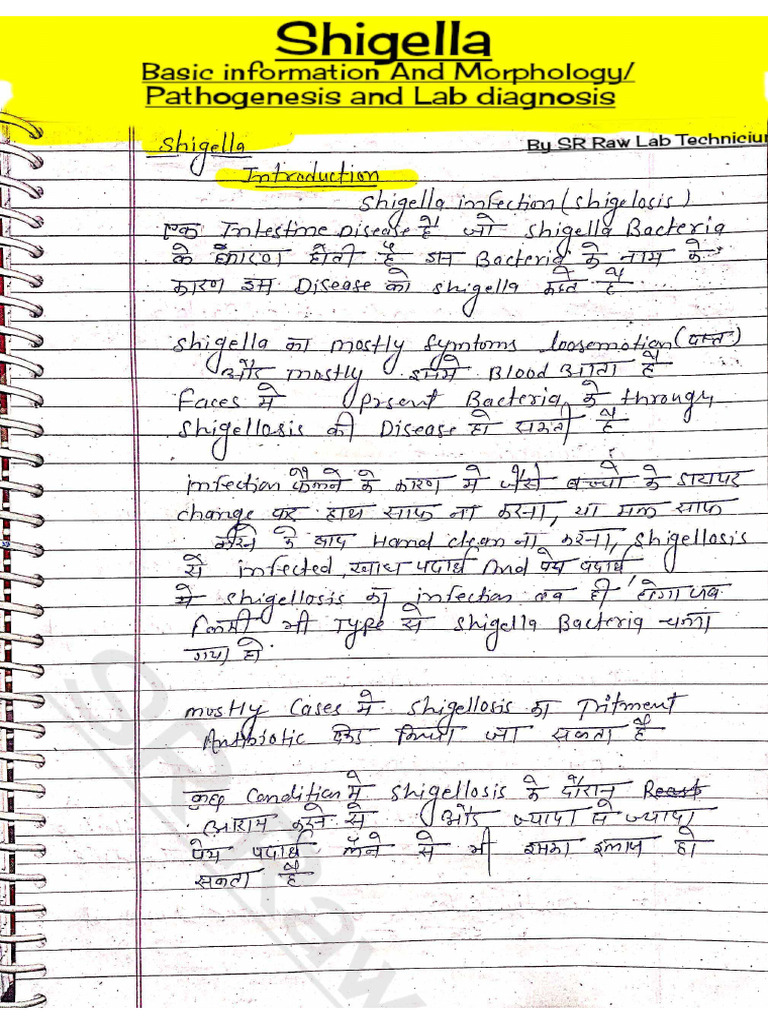 Shigella
Basic information And Morphology/
Pathogenesis and Lab diagnosis
By SR Raw Lab Technicium
Shigella
Introduction
Shigella infection (shigelosis)
एक Intestine Disease है जो Shigella Bacteria
के कारण होती है इस Bacteria के नाम के
कारण इस Disease को shigella कहते है
Shigella का mostly Symtoms loosemotion (दस्त)
और mostly इसमे Blood आता है
Faces मे Prsent Bacteria के through
Shigellosis की Disease हो सकती है
infection फैलने के कारण मे जैसे बच्चो के डायपर
change पर हाथ साफ ना करना, या मल साफ
करने के बाद Hand clean ना करना, Shigellosis
से infected खाध पदार्थ And पेय पदार्थ,
मे Shigellosis का infection तब ही होगा जब
किसी भी Type से Shigella Bacteria चला
गया हो.
mostly Cases मे Shigellosis का Tritment
Antibiotic किया जा सकता है
कुछ Condition मे Shigellosis के दौरान
आराम करने से और ज्यादा से ज्यादा
पेय पदार्थ लेने से भी इसका इलाज हो
सकता है
SR Raw